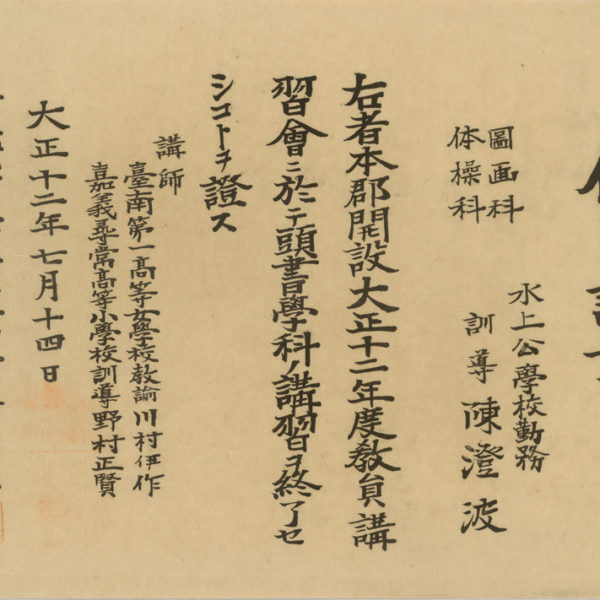 圖画科
体操科
水上公學校勤務
訓導 陳澄波
右者本郡開設大正十二年度教員講
習會ニ於テ頭書學科ノ講習ヲ終了セ
シコトヲ證ス
講師
臺南第一高等女學校教諭川村伊作
嘉義尋常高等小學校訓導野村正賢
大正十二年七月十四日